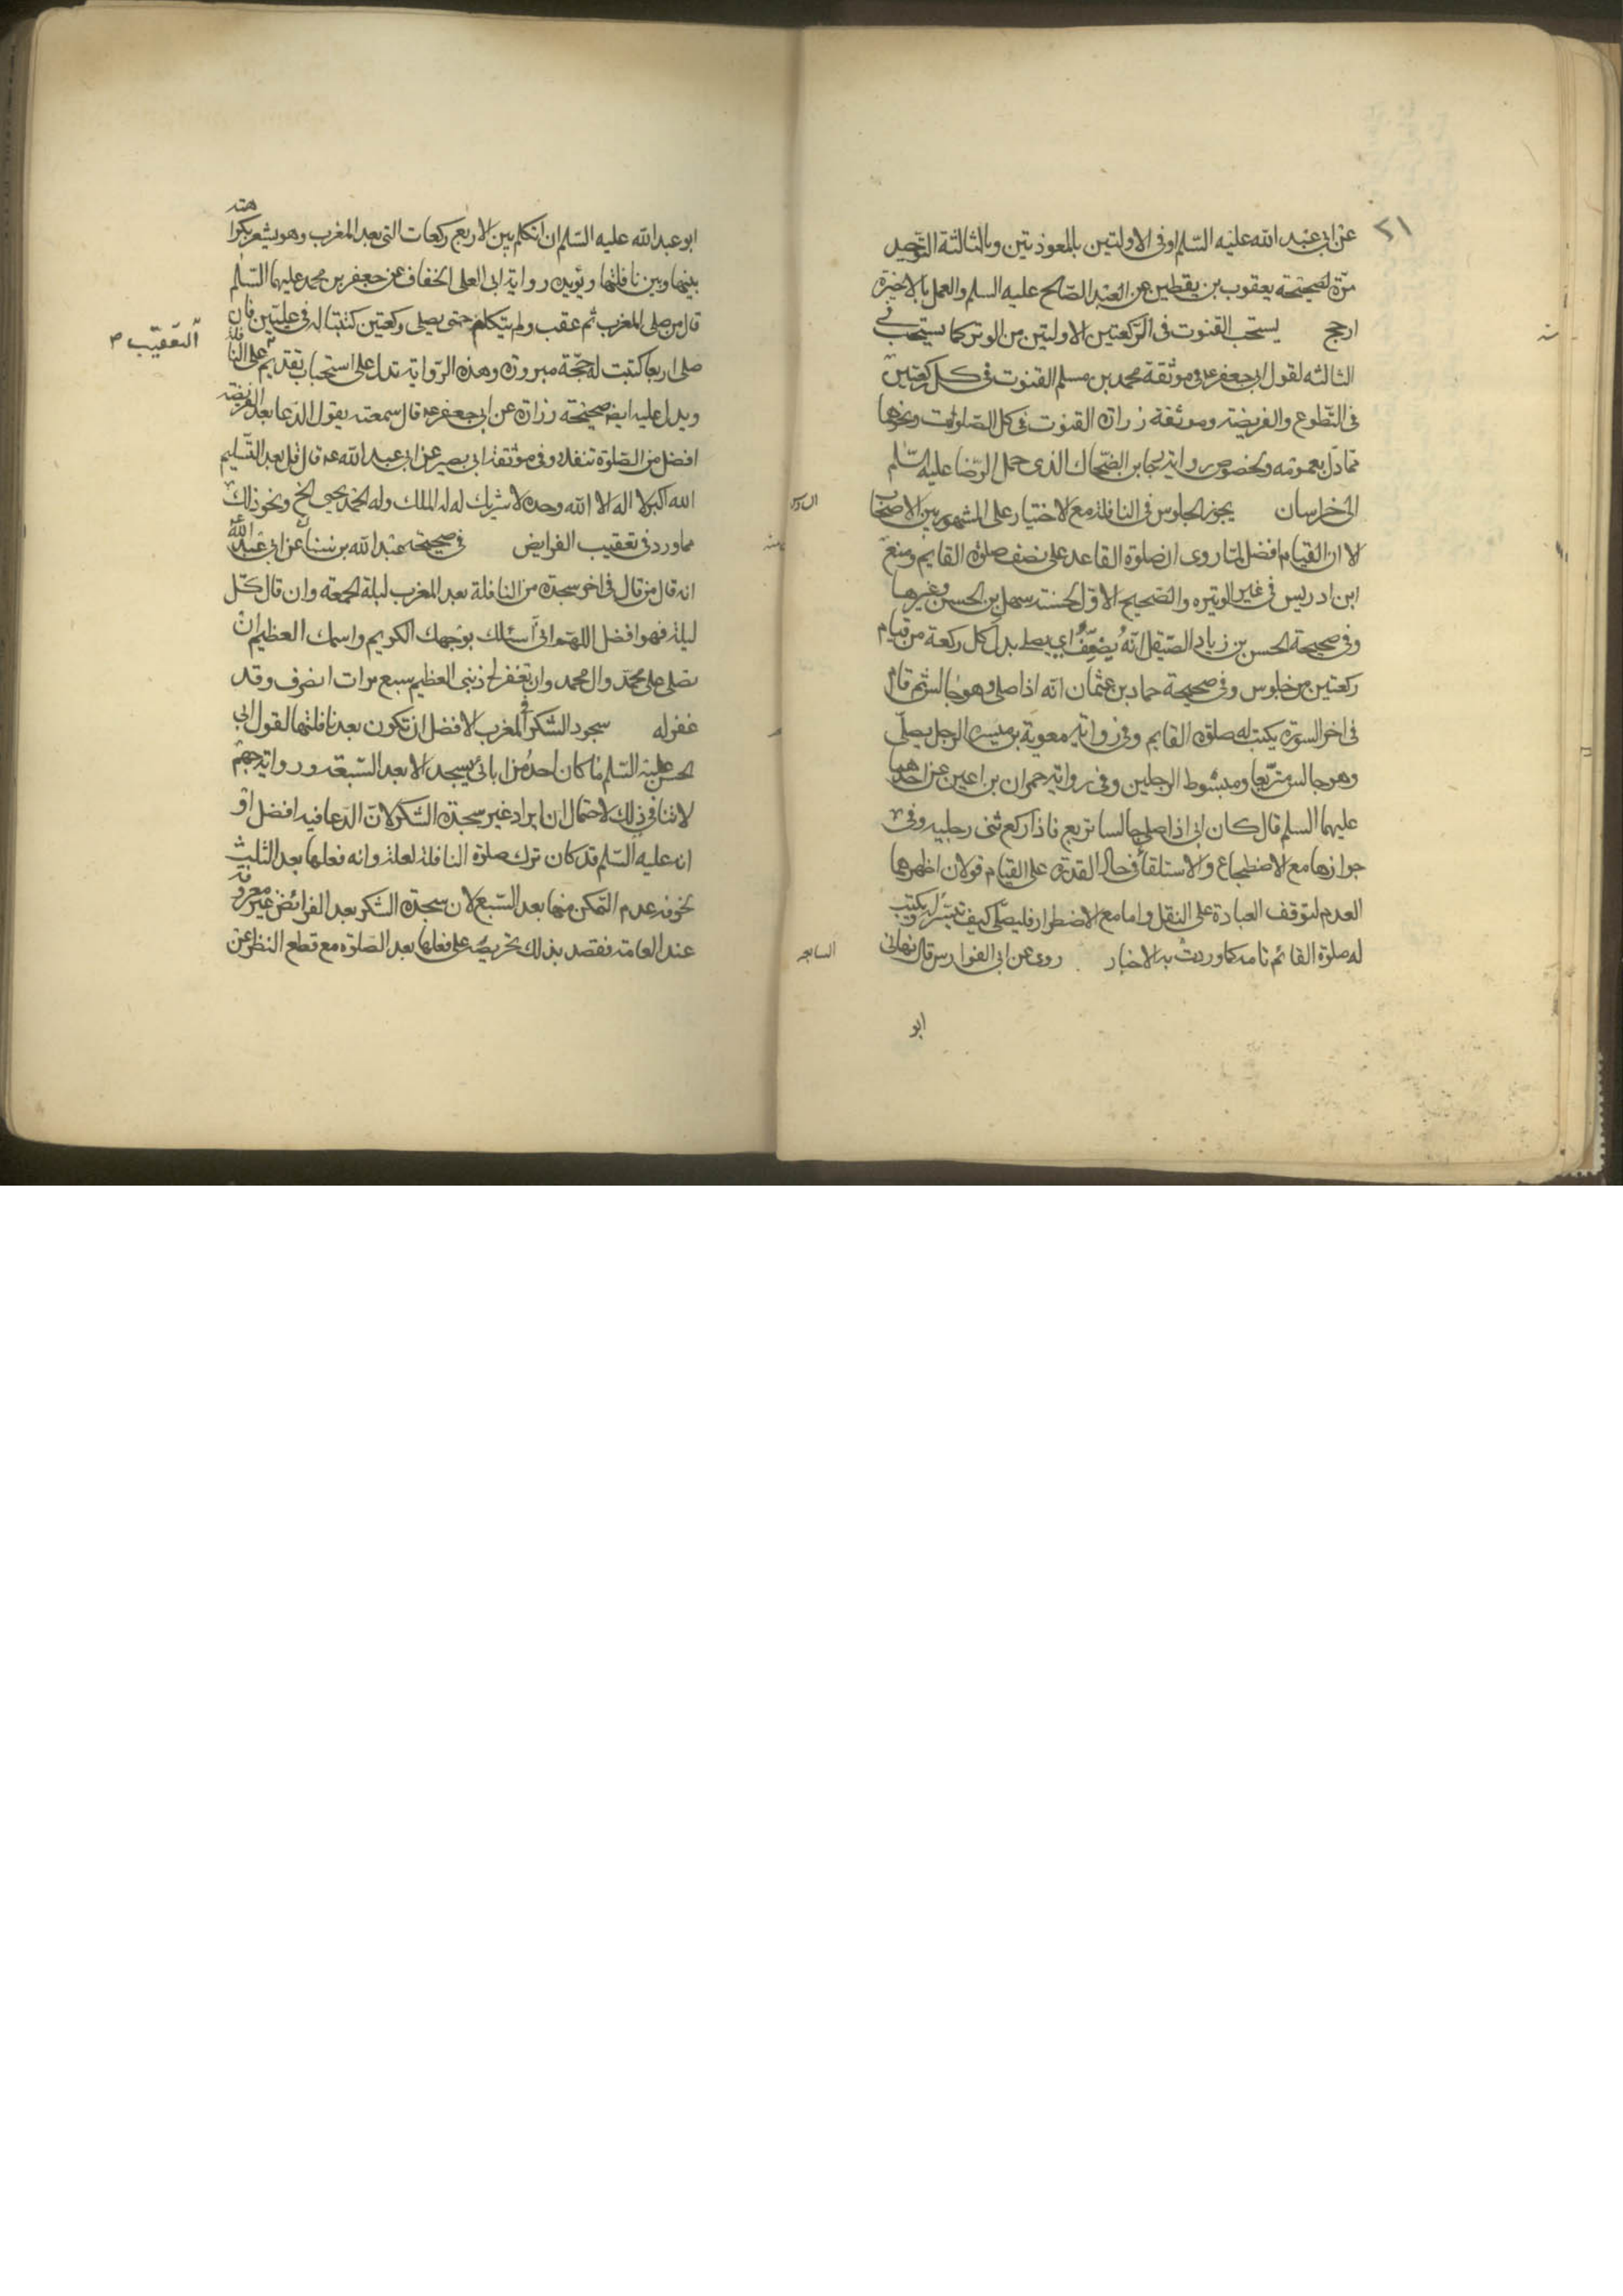 ٢١
عن ابي عبد الله عليه السّلم او في الاولتين بالمعوذتين وبالثالثة التوحيد
مرّة لصحيحة يعقوب بن يقطين عن العبد الصّالح عليه السلم والعمل بالاخيرة
ارجح يستحب القنوت في الرّكعتين الاولتين من الوتر كما يستحب في
الثالثه لقول ابي جعفر عه في موثقة محمد بن مسلم القنوت في كل ركعتين
في التطوع والفريضه وموثقة زرارة القنوت في كل الصّلوات ونحوها
مما دلّ بعمومه وبخصوص رواية رجا بن الضّحاك الذي حمل الرّضا عليه السّلم
الى خراسان يجوز الجلوس في النافلة مع الاختيار على المشهور بين الاصحاب
الا ان القيام افضل لما روى ان صلوة القاعد على نصف صلوة القايم ومنع
ابن ادريس في غير الوتيره والصّحيح الاوّل لحسنة سهل بن الحسن وغيرها
وفي صحيحة الحسن بن زياد الصّيقل انّه يُضعّفُ اي يصلي بدل كل ركعة من قيام
ركعتين من جلوس وفي صحيحة حماد بن عثمان انّه اذا صلى وهو جالس ثم قام
في اخر السورة يكتب له صلوة القايم وفي رواية معوية بن ميسره الرجل يصلّي
وهو جالس متربّعا ومبسُوط الرجلين وفي رواية حمران بن اعين عن احدهما
عليهما السلم قال كان ابي اذا صلى جالسا تربع فاذا ركع ثنى رجليه وفي
جوازها مع الاضطجاع والاستلقاء في حال القدرة على القيام قولان اظهرهما
العدم لتوقف العبادة على النقل واما مع الاضطرار فليصلّي كيف تيسّر له ويكتب
له صلوة القائم تامه كما وردت به الاخبار روى عن ابي الفوارس قال نهاني
السابعه
ابو
ابو عبد الله عليه السّلم ان اتكلم بين الاربع ركعات التي بعد المغرب وهو يشعر بكراهته
بينها وبين نافلتها ويؤيده رواية ابي العلى الخفاف عن جعفر بن محمد عليهما السّلم
قال من صلى المغرب ثم عقب ولم يتكلم حتى يصلي ركعتين كتبتا له في عليّين فان
التعقيب م
صلى اربعا كتبت له حجّة مبرورة وهذه الرّواية تدل على استحباب تقديم على النافلة
ويدل عليه ايض صحيحة زرارة عن ابي جعفر عه قال سمعته يقول الدّعا بعد الفريضه
افضل من الصّلوة تنفلا وفي موثقة ابي بصير عن ابي عبد الله عه قال قل بعد التّسليم
الله اكبر لا اله الا الله وحده لا شريك له له الملك وله الحمد يحيى الخ ونحو ذلك
مما ورد في تعقيب الفرايض في صحيحة عبد الله بن سنان عن ابي عبد الله
انه قال من قال في اخر سجدة من النافلة بعد المغرب ليلة الجمعة وان قال كلّ
ليلة فهو افضل اللهمّ اني أسئلك بوَجهك الكريم واسمك العظيم ان
تصلي على محمّد وال محمد وان تغفر لي ذنبي العظيم سبع مرات انصرف وقد
غفر له سجود الشكر في المغرب الافضل ان تكون بعد نافلتها لقول ابي
الحسن عليه السّلم ما كان احدٌ من ابائي يسجد الا بعد السّبعة ورواية جهم
لا تنافي ذلك لاحتمال ان يراد غير سجدة الشكر لانّ الدّعا فيه افضل او
انه عليه السّلم قد كان ترك صلوة النافلة لعلة وانه فعلها بعد الثلث
نحوفه عدم التمكن منها بعد السّبع لان سجدة الشكر بعد الفرائض غير معروفة
عند العامة فقصد بذلك تحريضه على فعلها بعد الصّلوة مع قطع النظر عن